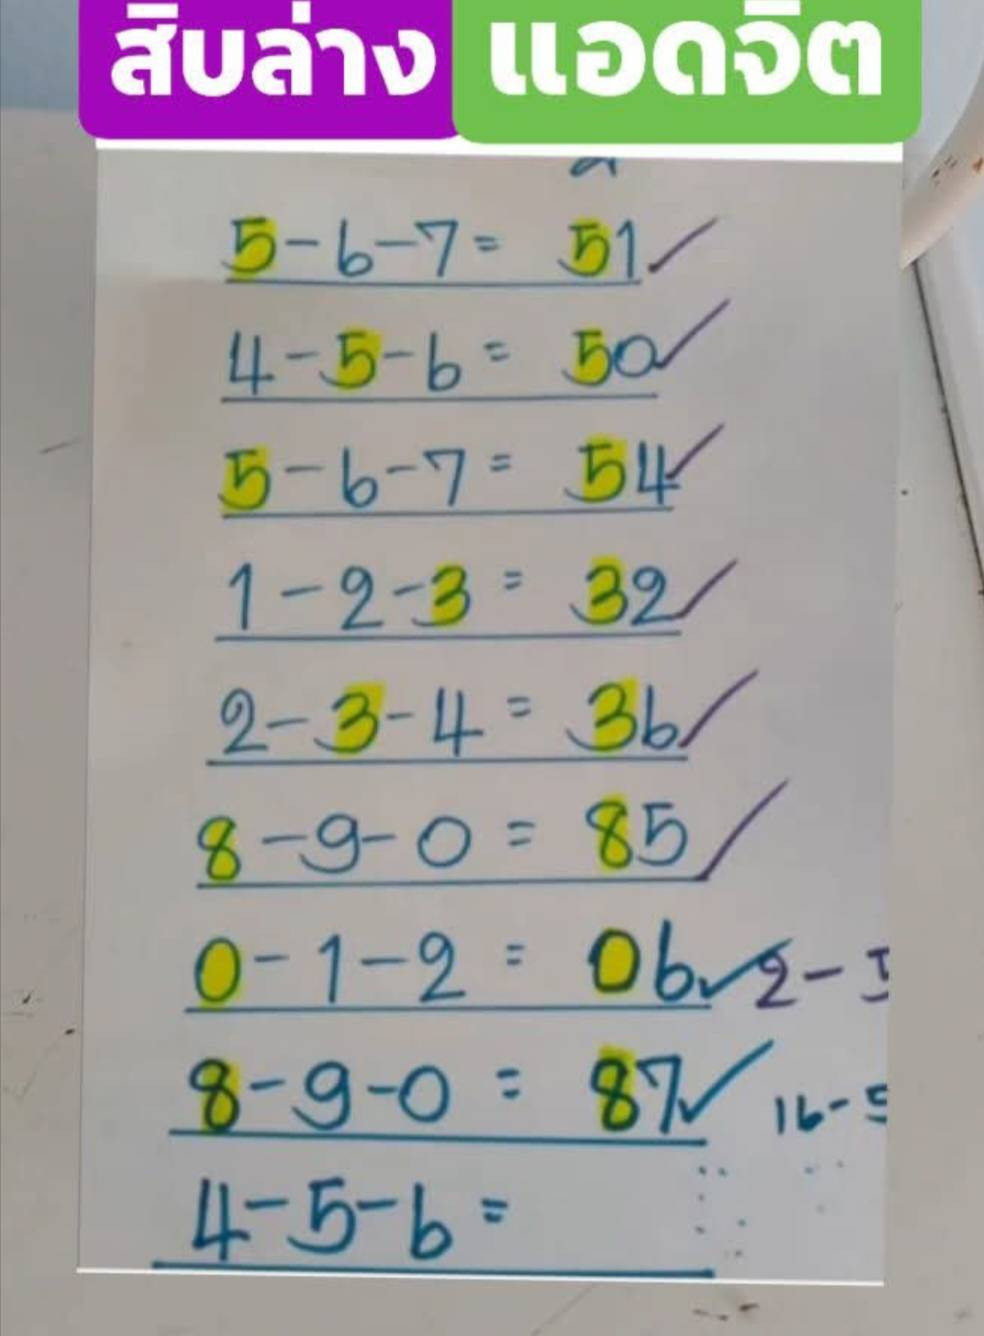 สิบล่าง แอดจิต
5-6-7= 51
4-5-6= 50
5-6-7= 54
1-2-3= 32
2-3-4= 36
8-9-0= 85
0-1-2= 06 2-
8-9-0= 87 16-5
4-5-6=